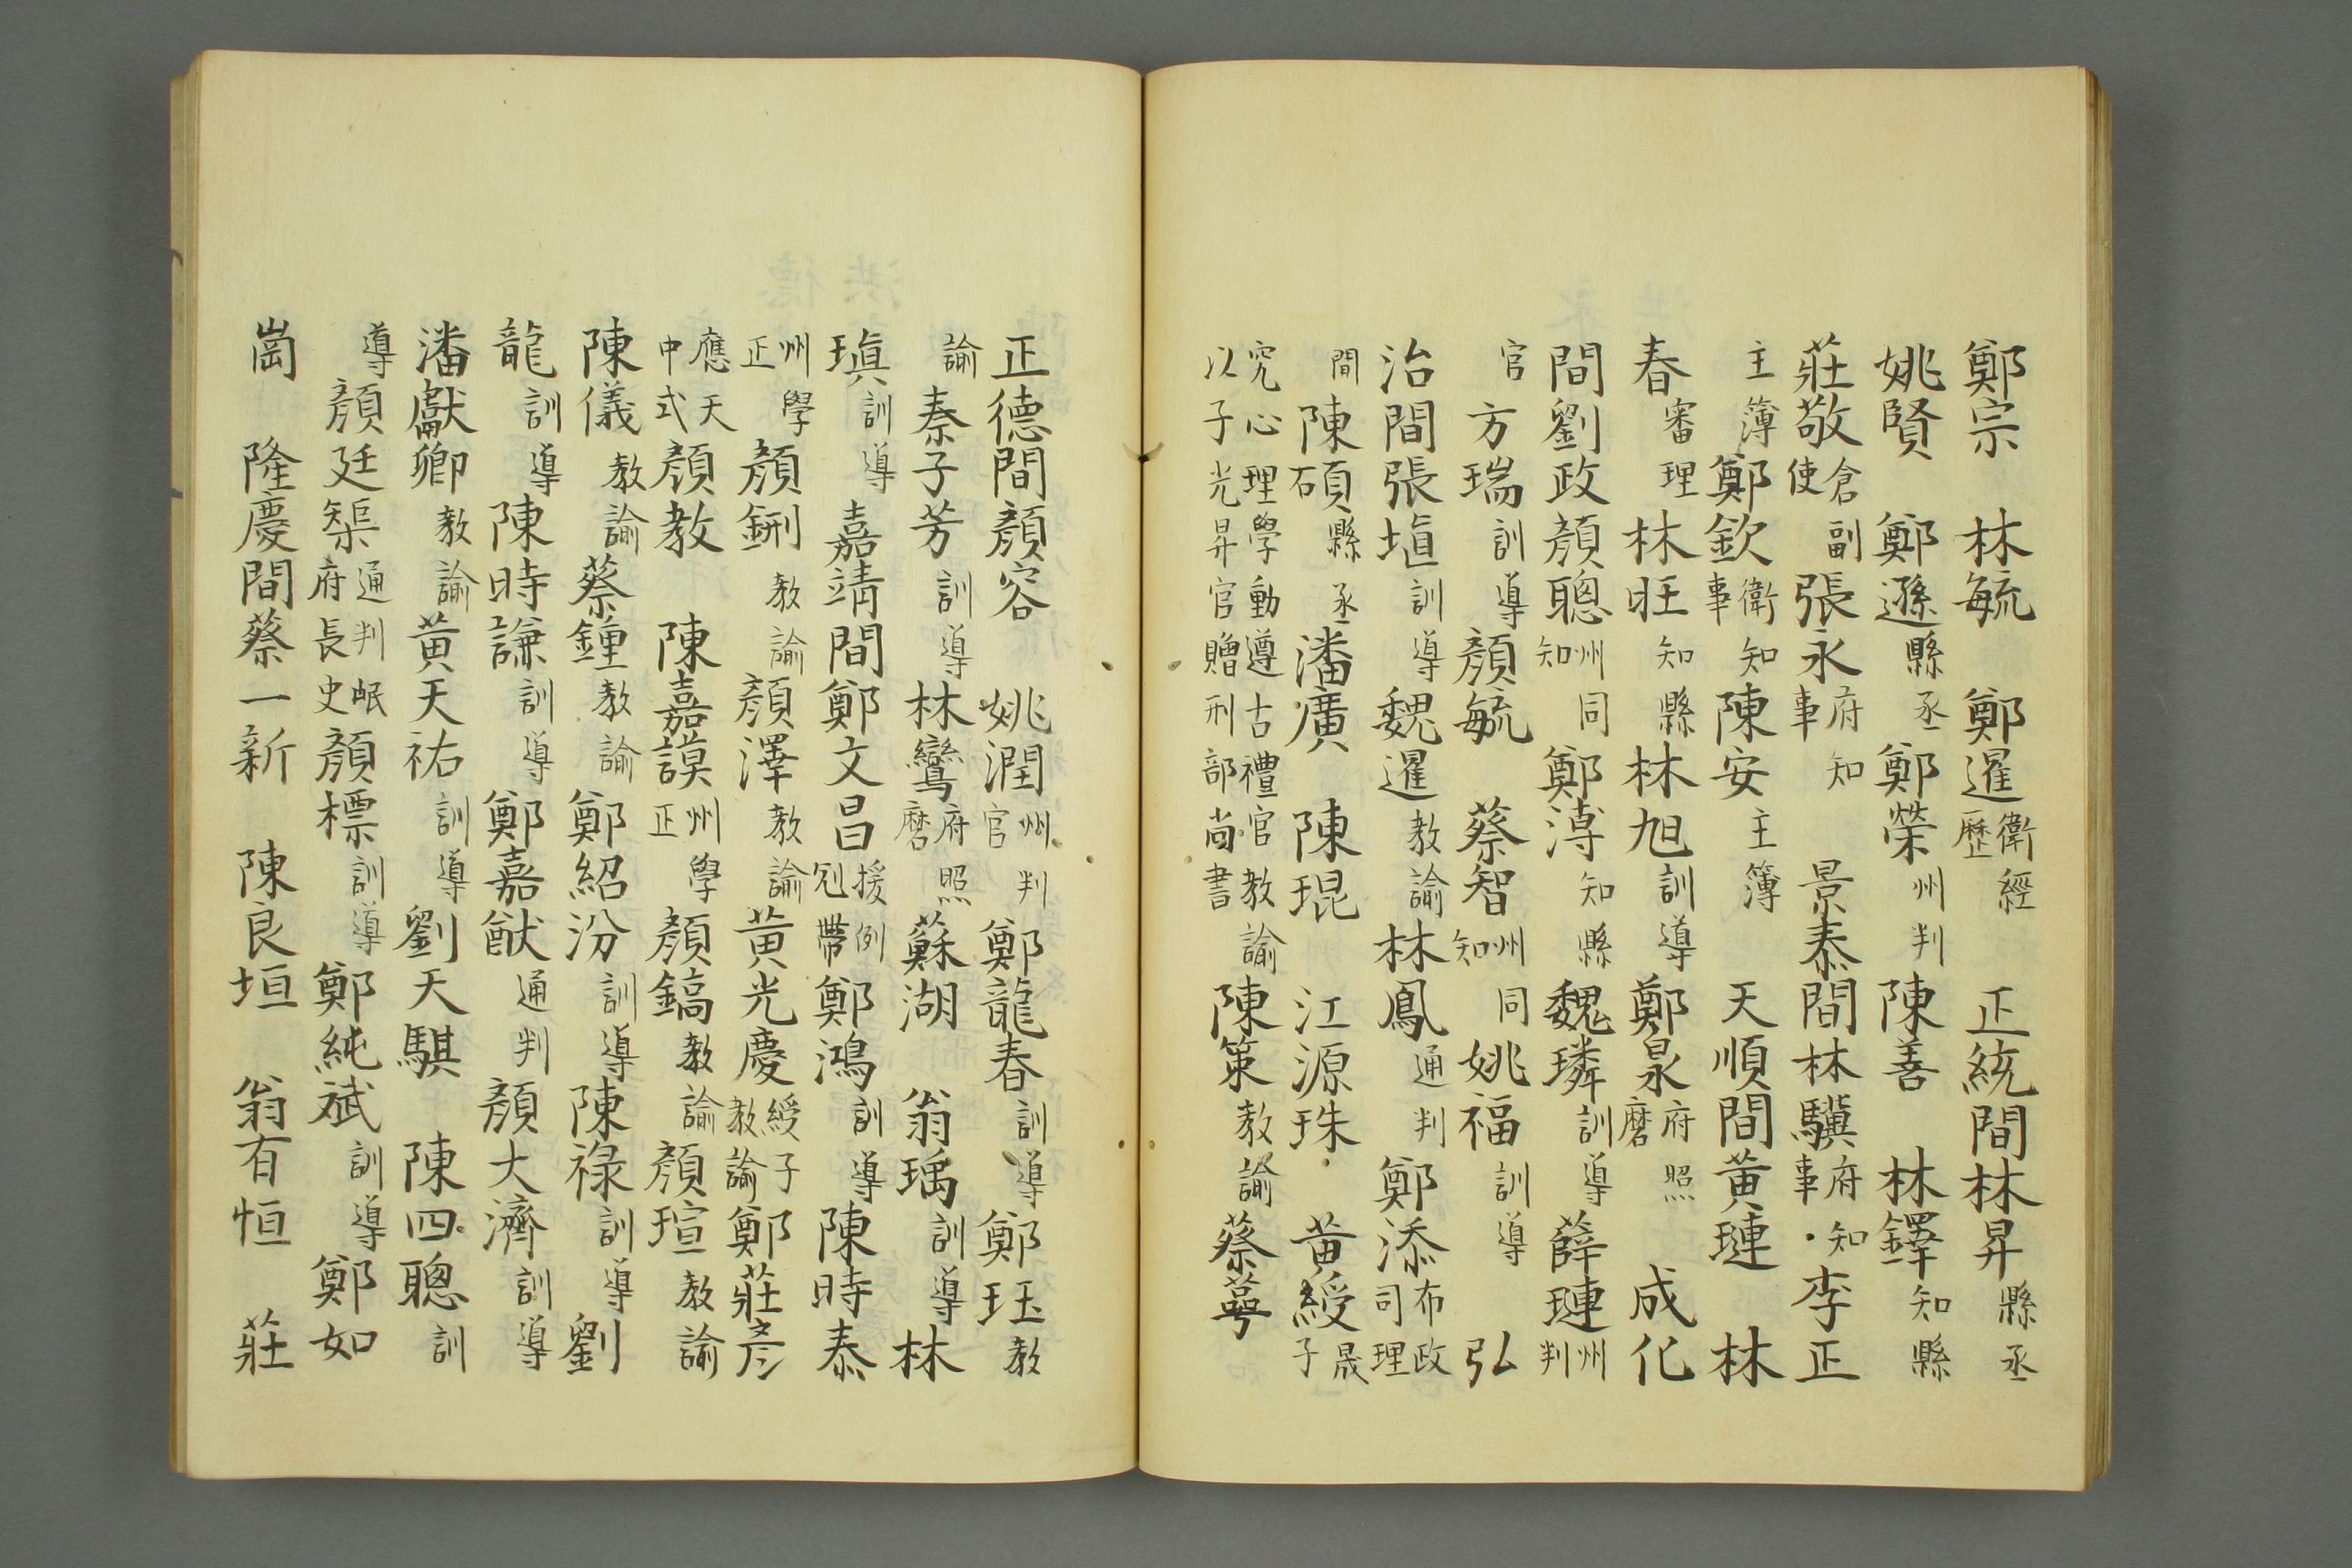 鄭宗　林毓　鄭暹衛經歷　正統間林昇縣丞
姚賢　鄭遜縣丞鄭榮州判陳善　林鐸知縣
莊敬倉副使張永府知事　景泰間林驥府知事李正
主簿鄭欽衛知事陳安主簿　天順間黃璉　林
春審理林旺知縣林旭訓導鄭泉府照磨　成化
間劉政顏聰州同知鄭溥知縣魏璘訓導薛璉州判
官方瑞訓導顏毓　蔡智州同知姚福訓導　弘
治間張埴訓導魏暹教諭林鳳通判鄭添布政司理
間陳碩縣丞潘廣　陳琨　江源珠　黃綬晟子
究心理學動遵古禮官教諭以子光昇官贈刑部尚書陳策教諭蔡蕚
正德間顏容　姚潤州判官鄭龍春訓導鄭珏教
諭秦子芳訓導林鸞府照磨蘇湖　翁瑀訓導林
瑱訓導　嘉靖間鄭文昌援例冠帶鄭鴻訓導陳時泰
州學正顏鉶教諭顏澤教諭黃光慶綬子教諭鄭莊彥
應天中式顏教　陳嘉謨州學正顏鎬教諭顏瑄教諭
陳儀教諭蔡鍾教諭鄭紹汾訓導陳祿訓導劉
龍訓導陳時謙訓導鄭嘉猷通判顏大濟訓導
潘獻卿教諭黃天祐訓導劉天騏　陳四聰訓
導顏廷榘通判岷府長史顏標訓導鄭純斌訓導鄭如
崗　隆慶間蔡一新　陳良垣　翁有恒　莊